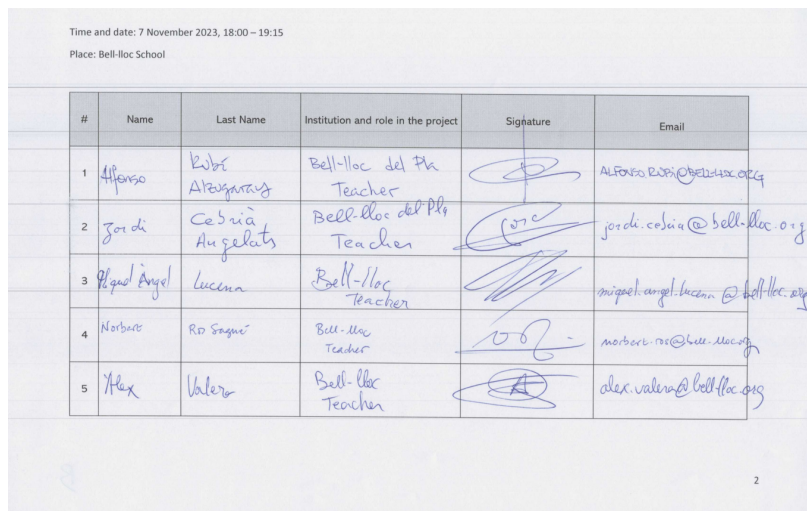 Time and date: 7 November 2023, 18:00 – 19:15
Place: Bell-lloc School
# Name Last Name Institution and role in the project Signature Email
1 Alfonso Rubí Bell-lloc del Pla Teacher ALFONSO.RUBI@BELL-LLOC.ORG
2 Jordi Cebrià Angelats Bell-lloc del Pla Teacher jordi.cebria@bell-lloc.org
3 Miquel Àngel Lucena Bell-lloc Teacher miquel.angel.lucena@bell-lloc.org
4 Norbert Ros Sagué Bell-lloc Teacher norbert.ros@bell-lloc.org
5 Alex Valero Bell-lloc Teacher alex.valero@bell-lloc.org
2